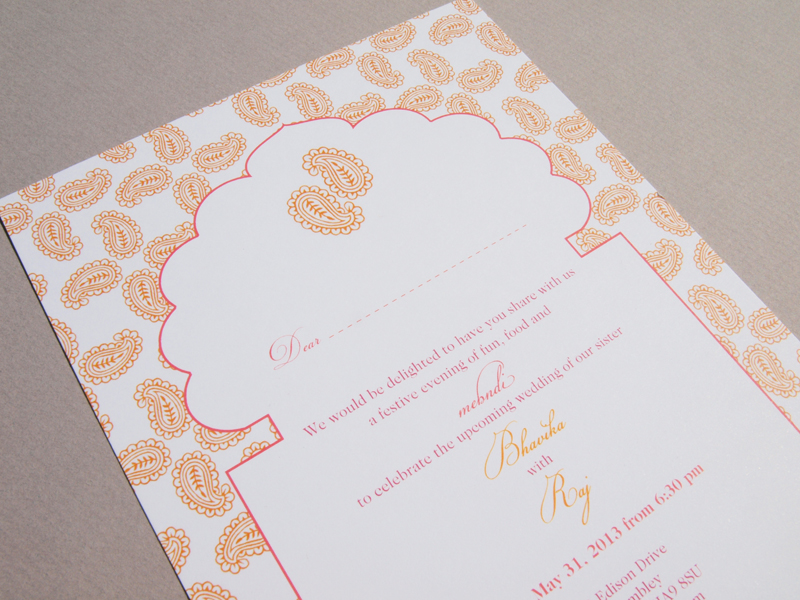 Dear
We would be delighted to have you share with us
a festive evening of fun, food and
mehndi
to celebrate the upcoming wedding of our sister
Bhavika
with
Raj
May 31, 2013 from 6:30 pm
Edison Drive
8SU